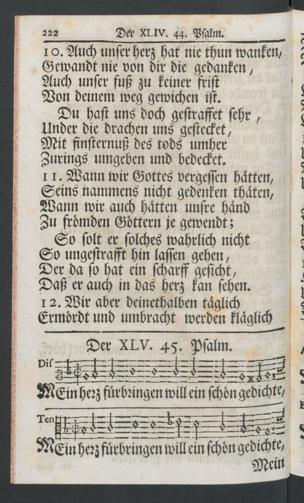 222 Der XLIV. 44. Psalm.
10. Auch unser herz hat nie thun wanken,
Gewandt nie von dir die gedanken,
Auch unser fuß zu keiner frist
Von deinem weg gewichen ist.
Du hast uns doch gestraffet sehr,
Under die drachen uns gestecket,
Mit finsternuß des tods umher
Zurings umgeben und bedecket.
11. Wann wir Gottes vergessen hätten,
Seins nammens nicht gedenken thäten,
Wann wir auch hätten unsre händ
Zu frömden Göttern je gewendt;
So solt er solches wahrlich nicht
So ungestrafft hin lassen gehen,
Der da so hat ein scharff gesicht,
Daß er auch in das herz kan sehen.
12. Wir aber deinethalben täglich
Ermördt und umbracht werden kläglich
Der XLV. 45. Psalm.
Dis
MEin herz fürbringen will ein schön gedichte,
Ten
MEin herz fürbringen will ein schön gedichte,
Mein